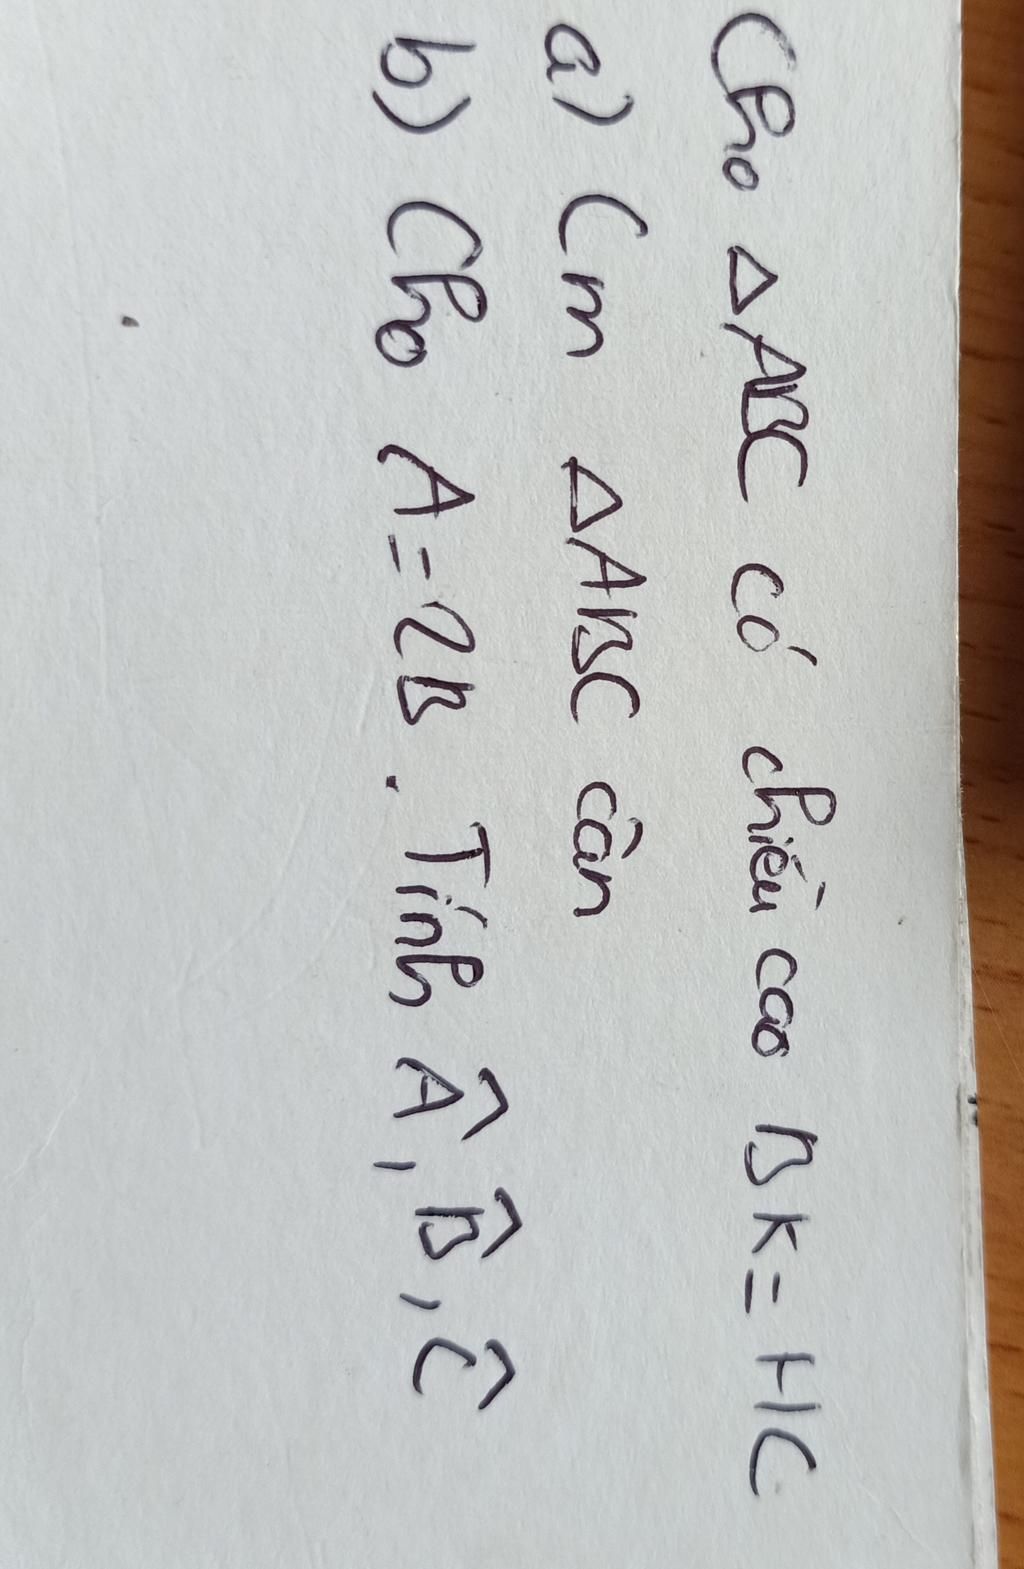 Cho △ABC có chiều cao BK = HC
a) Cm △ABC cân
b) Cho A = 2B. Tính Â, B̂, Ĉ